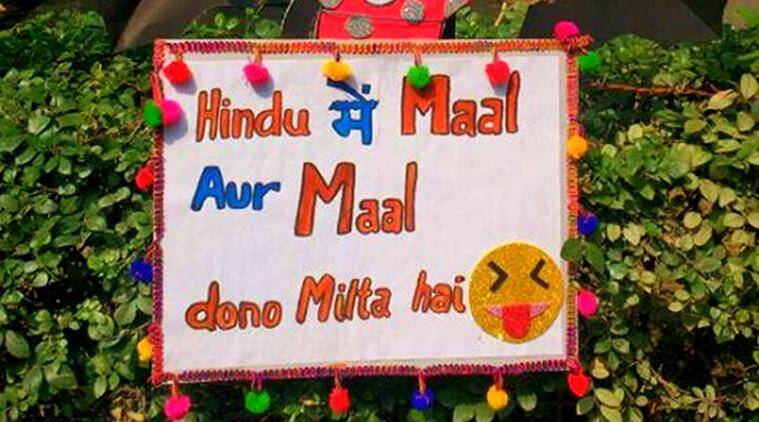 Hindu में Maal
Aur Maal
dono Milta hai